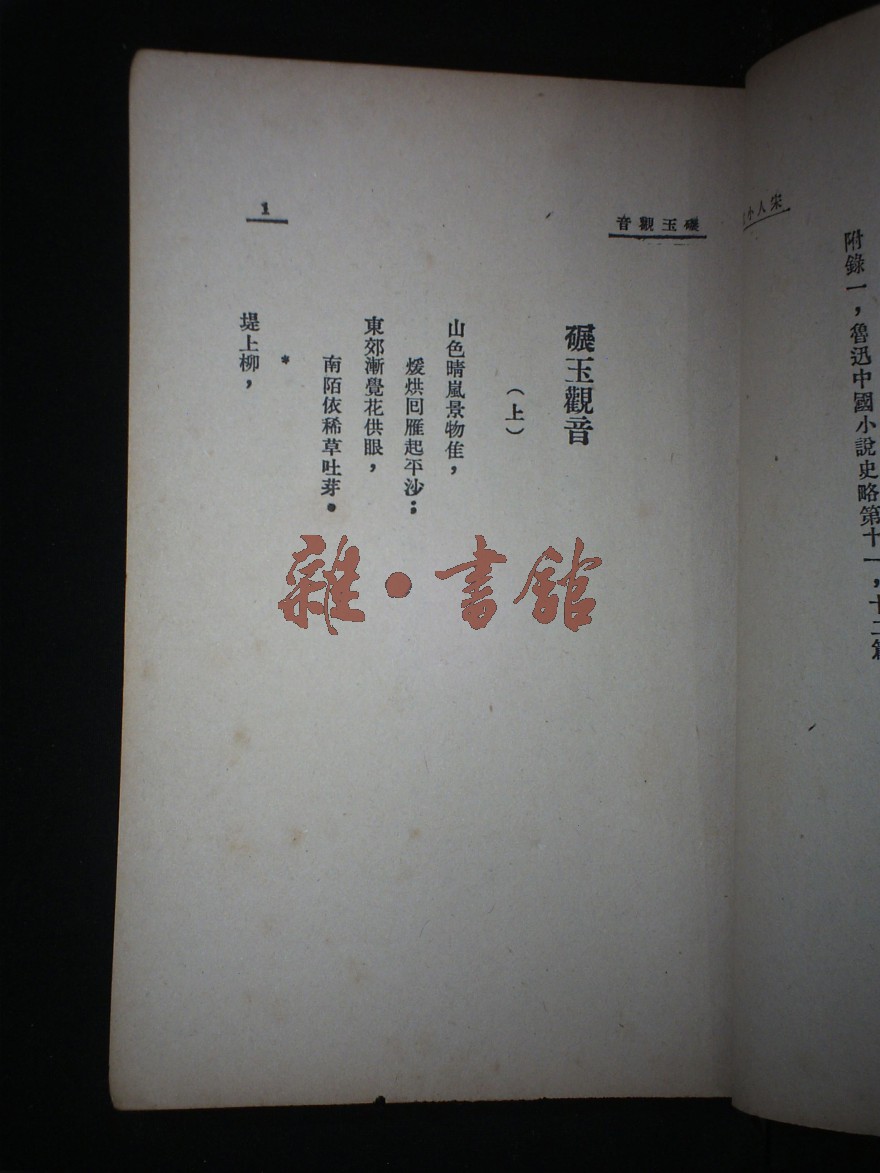 宋人小
附錄一，魯迅中國小說史略第十一，十二篇
碾玉觀音
1
碾玉觀音
（上）
山色晴嵐景物佳，
煖烘囘雁起平沙；
東郊漸覺花供眼，
南陌依稀草吐芽。
*
堤上柳，
雜•書館